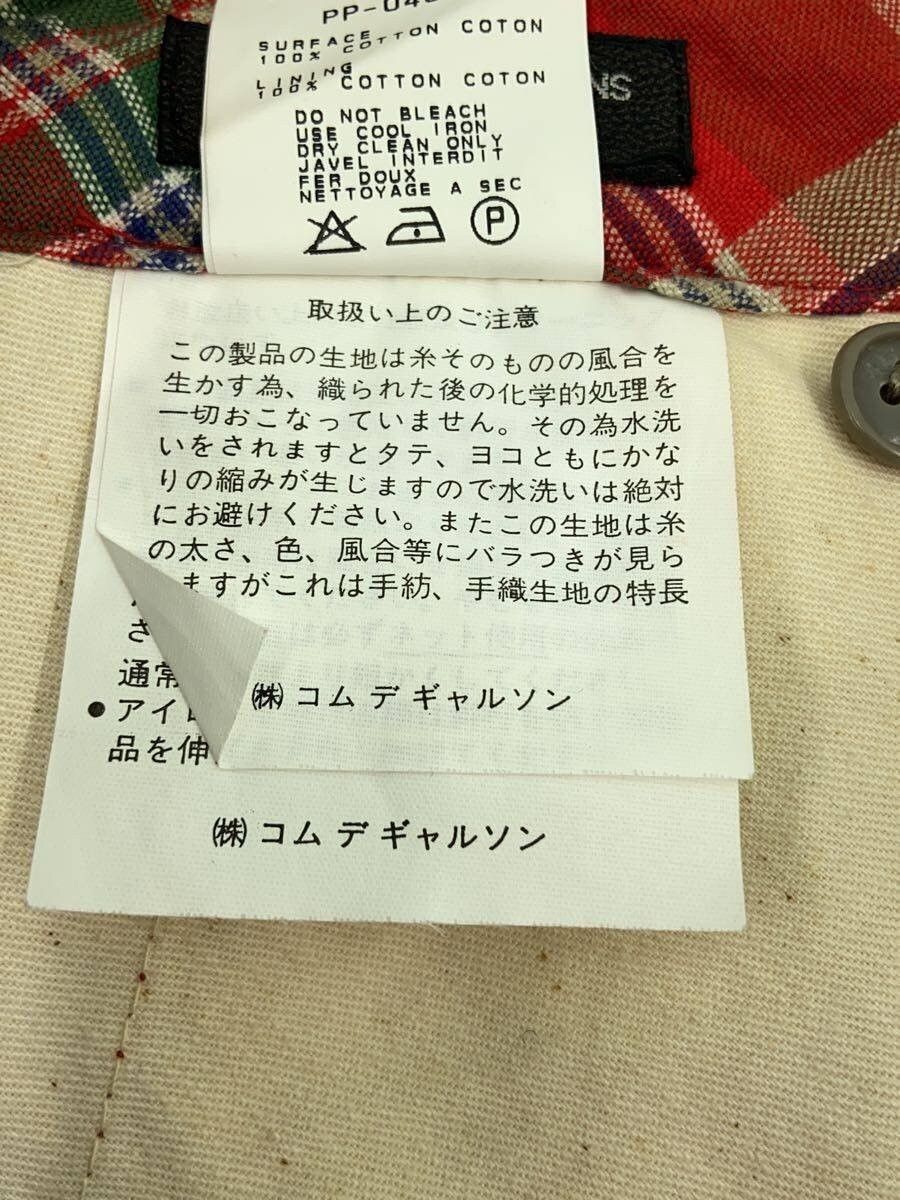 PP-04
SURFACE
100% COTTON COTON
LINING
100% COTTON COTON
NS
DO NOT BLEACH
USE COOL IRON
DRY CLEAN ONLY
JAVEL INTERDIT
FER DOUX
NETTOYAGE A SEC
P
取扱い上のご注意
この製品の生地は糸そのものの風合を
生かす為、織られた後の化学的処理を
一切おこなっていません。その為水洗
いをされますとタテ、ヨコともにかな
りの縮みが生じますので水洗いは絶対
にお避けください。またこの生地は糸
の太さ、色、風合等にバラつきが見ら
ますがこれは手紡、手織生地の特長
さ
通常
㈱ コム デ ギャルソン
●アイロ
品を伸
㈱ コム デ ギャルソン